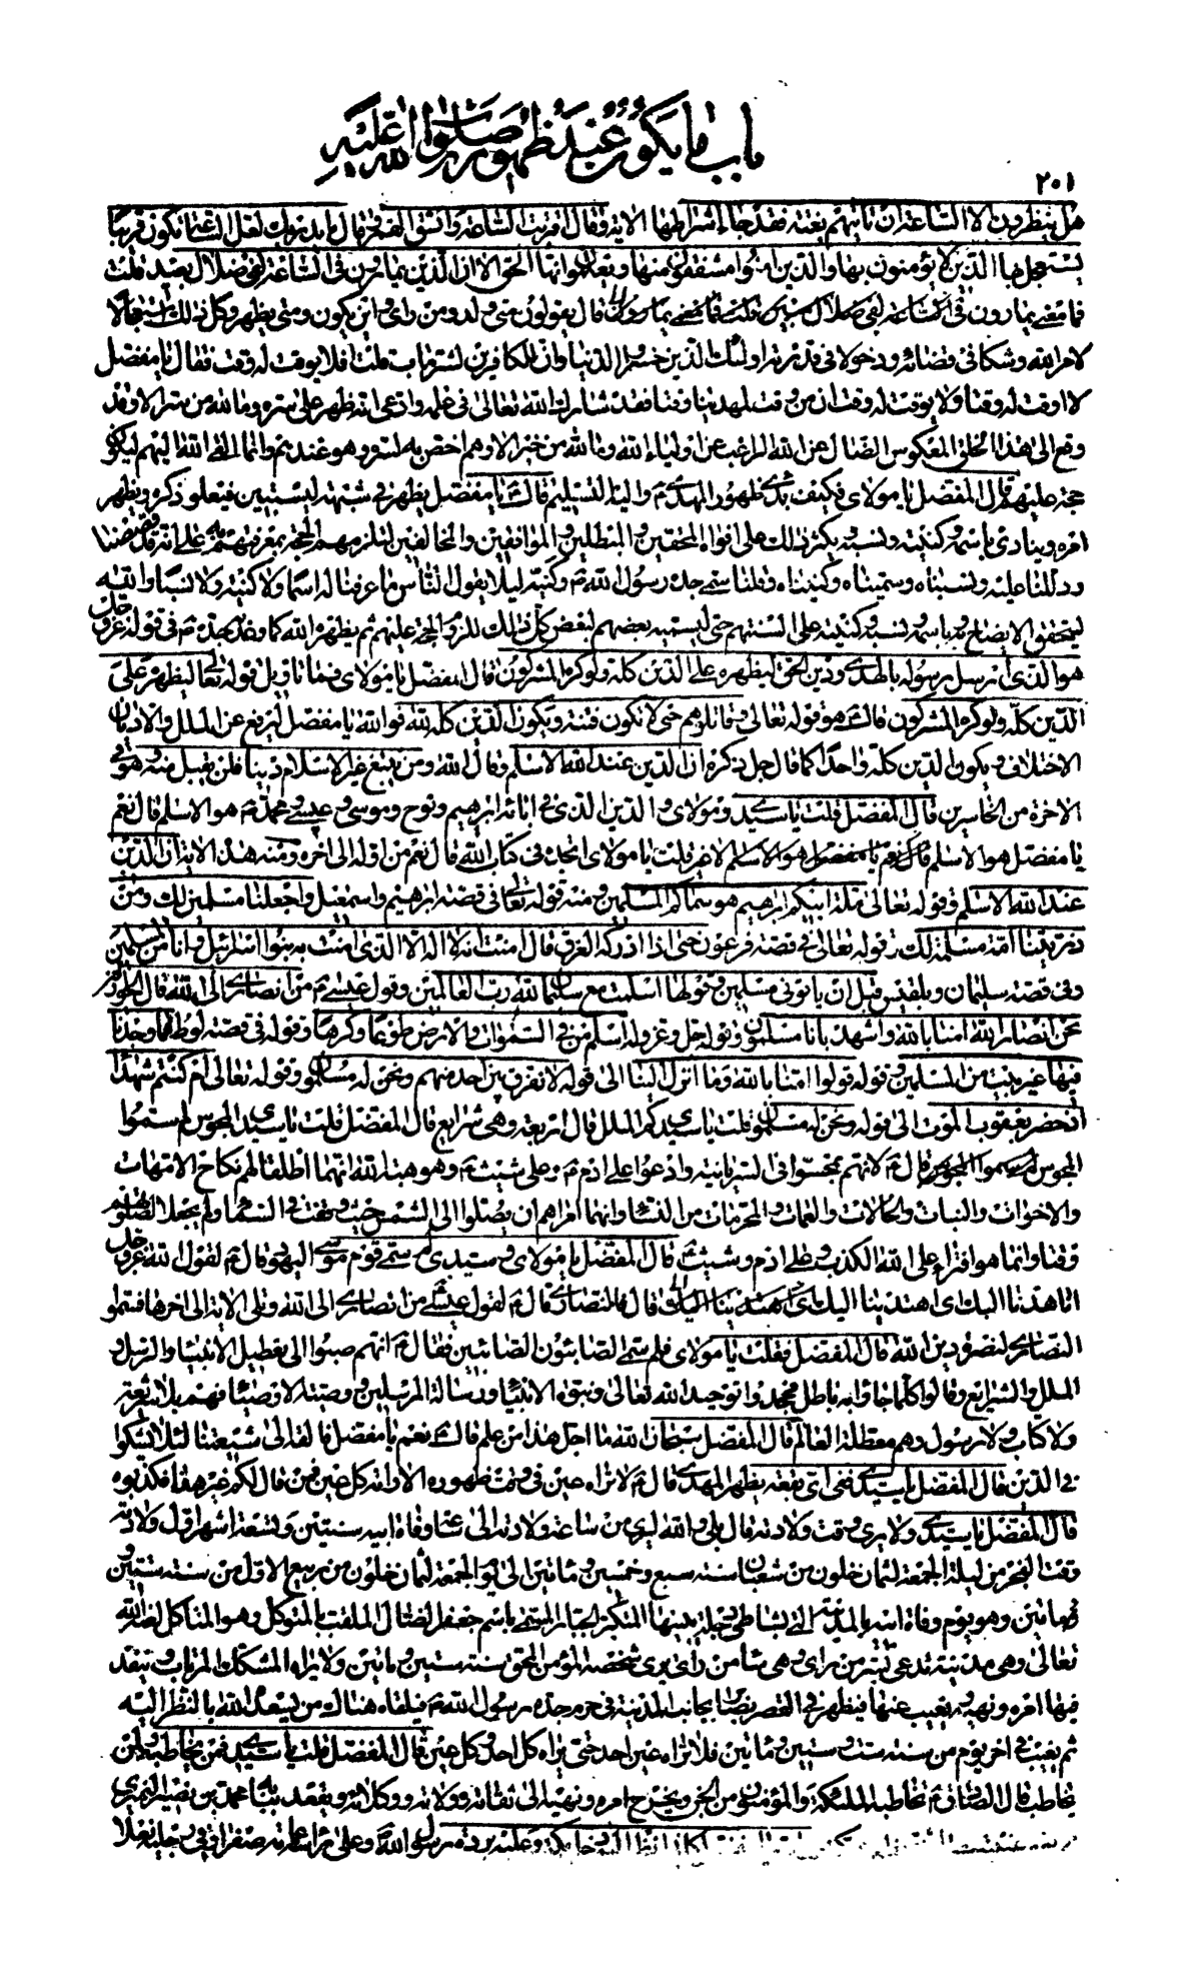 باب ما يكون عند ظهوره صلوات الله عليه
٢٠١
هل ينظرون الا الساعة ان تاتيهم بغتة فقد جاء اشراطها الاية وقال اقتربت الساعة وانشق القمر وقال وما يدريك لعل الساعة تكون قريبا
يستعجل بها الذين لا يؤمنون بها والذين امنوا مشفقون منها ويعلمون انها الحق الا ان الذين يمارون في الساعة لفي ضلال بعيد قلت
فما معنى يمارون قال يقولون متى ولد ومن راى واين يكون ومتى يظهر وكل ذلك استعجالا
لامر الله وشكا في قضائه ودخولا في قدرته اولئك الذين خسروا الدنيا وان للكافرين لشر ماب قلت افلا يوقت له وقت فقال يا مفضل
لا اوقت له وقتا ولا يوقت له وقت ان من وقت لمهدينا وقتا فقد شارك الله تعالى في علمه وادعى انه ظهر على سره وما لله من سر الا وقد
وقع الى هذا الخلق المعكوس الضال عن الله الراغب عن اولياء الله وما لله من خبر الا وهم اخص به لسره وهو عندهم وانما القى الله اليهم ليكون
حجة عليهم قال المفضل يا مولاي فكيف بدء ظهور المهدي ع واليه التسليم قال ع يا مفضل يظهر في شبهة ليستبين فيعلو ذكره ويظهر
امره وينادى باسمه وكنيته ونسبه ويكثر ذلك على افواه المحقين والمبطلين والموافقين والمخالفين لتلزمهم الحجة بمعرفتهم به على انه قد قصصنا
ودللنا عليه ونسبناه وسميناه وكنيناه وقلنا سمي جده رسول الله ص وكنيه لئلا يقول الناس ما عرفنا له اسما ولا كنية ولا نسبا والله
ليتحقق الايضاح به وباسمه ونسبه وكنيته على السنتهم حتى ليسميه بعضهم لبعض كل ذلك للزوم الحجة عليهم ثم يظهره الله كما وعد به جده ص في قوله عز وجل
هو الذي ارسل رسوله بالهدى ودين الحق ليظهره على الدين كله ولو كره المشركون قال المفضل يا مولاي فما تاويل قوله تعالى ليظهره على
الدين كله ولو كره المشركون قال ع هو قوله تعالى وقاتلوهم حتى لا تكون فتنة ويكون الدين كله لله فوالله يا مفضل ليرفع عن الملل والاديان
الاختلاف ويكون الدين كله واحدا كما قال جل ذكره ان الدين عند الله الاسلام وقال الله ومن يبتغ غير الاسلام دينا فلن يقبل منه وهو في
الاخرة من الخاسرين قال المفضل قلت يا سيدي ومولاي والدين الذي في ابائه ابرهيم ونوح وموسى وعيسى ومحمد ص هو الاسلام قال نعم
يا مفضل هو الاسلام لا غير قلت يا مولاي اتجده في كتاب الله قال نعم من اوله الى اخره ومنه هذه الاية ان الدين
عند الله الاسلام وقوله تعالى ملة ابيكم ابرهيم هو سماكم المسلمين ومنه قوله تعالى في قصة ابرهيم واسمعيل واجعلنا مسلمين لك ومن
ذريتنا امة مسلمة لك وقوله تعالى في قصة فرعون حتى اذا ادركه الغرق قال امنت انه لا اله الا الذي امنت به بنوا اسرائيل وانا من المسلمين
وفي قصة سليمان وبلقيس قبل ان ياتوني مسلمين وقولها اسلمت مع سليمان لله رب العالمين وقول عيسى ع من انصاري الى الله قال الحواريون
نحن انصار الله امنا بالله واشهد بانا مسلمون وقوله جل وعز وله اسلم من في السموات والارض طوعا وكرها وقوله في قصة لوط فما وجدنا
فيها غير بيت من المسلمين وقوله قولوا امنا بالله وما انزل الينا الى قوله لا نفرق بين احد منهم ونحن له مسلمون وقوله تعالى ام كنتم شهداء
اذ حضر يعقوب الموت الى قوله ونحن له مسلمون قلت يا سيدي كم الملل قال اربعة وهي شرايع قال المفضل قلت يا سيدي المجوس لم سموا
المجوس قال ع لانهم تمجسوا في السريانية وادعوا على ادم ع وعلى شيث ع وهو هبة الله انهما اطلقا لهم نكاح الامهات
والاخوات والبنات والخالات والعمات والمحرمات من النساء وانهما امراهم ان يصلوا الى الشمس حيث وقفت في السماء ولم يجعلا لصلوتهم
وقتا وانما هو افتراء على الله الكذب وعلى ادم وشيث ع قال المفضل يا مولاي وسيدي لم سمي قوم موسى اليهود قال ع لقول الله عز وجل
انا هدنا اليك اي اهتدينا اليك قال فالنصارى قال ع لقول عيسى ع من انصاري الى الله وتلى الاية الى اخرها فسموا
النصارى لنصرة دين الله قال المفضل فقلت يا مولاي فلم سمي الصابئون الصابئين فقال ع انهم صبوا الى تعطيل الانبياء والرسل و
الملل والشرايع وقالوا كلما جاؤا به باطل فجحدوا توحيد الله تعالى ونبوة الانبياء ورسالة المرسلين ووصية الاوصياء فهم بلا شريعة
ولا كتاب ولا رسول وهم معطلة العالم قال المفضل سبحان الله ما اجل هذا من علم قال ع نعم يا مفضل فالقه الى شيعتنا لئلا يشكوا
في الدين قال المفضل يا سيدي ففي اي بقعة يظهر المهدي قال ع لا تراه عين في وقت ظهوره الا راته كل عين فمن قال لكم غير هذا فكذبوه
قال المفضل يا سيدي ولا يرى وقت ولادته قال بلى والله ليرى من ساعة ولادته الى ساعة وفاة ابيه سنتين وتسعة اشهر اول ولادته
وقت الفجر من ليلة الجمعة لثمان خلون من شعبان سنة سبع وخمسين ومائتين الى يوم الجمعة لثمان خلون من ربيع الاول من سنة ستين
ومائتين وهو يوم وفاة ابيه بالمدينة التي بشاطي دجلة يبنيها المتكبر الجبار المسمى باسم جعفر الضال الملقب بالمتوكل وهو المتاكل لعنه الله
تعالى وهي مدينة تدعى بسر من راى وهي ساء من راى يرى شخصه المؤمن المحق سنة ستين ومائتين ولا يراه المشكك المرتاب وينفذ
فيها امره ونهيه ويغيب عنها فيظهر في القصر بصابر بجانب المدينة في حرم جده رسول الله ص فيلقاه هناك من يسعده الله بالنظر اليه
ثم يغيب في اخر يوم من سنة ست وستين ومائتين فلا تراه عين احد حتى يراه كل احد وكل عين قال المفضل قلت يا سيدي فمن يخاطبه ولمن
يخاطب قال الصادق ع تخاطبه الملئكة والمؤمنون من الجن ويخرج امره ونهيه الى ثقاته وولاته ووكلائه ويقعد ببابه محمد بن نصير النميري
وعليه بردة رسول الله وعلى راسه عمامة صفراء وفي رجليه نعلا